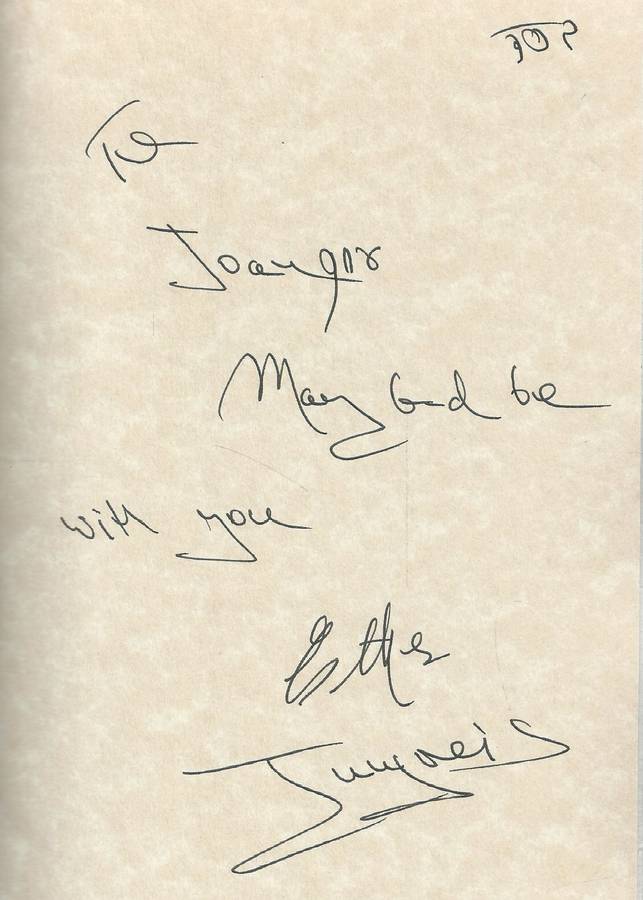 To
May God be
with you
Esther
Jungreis